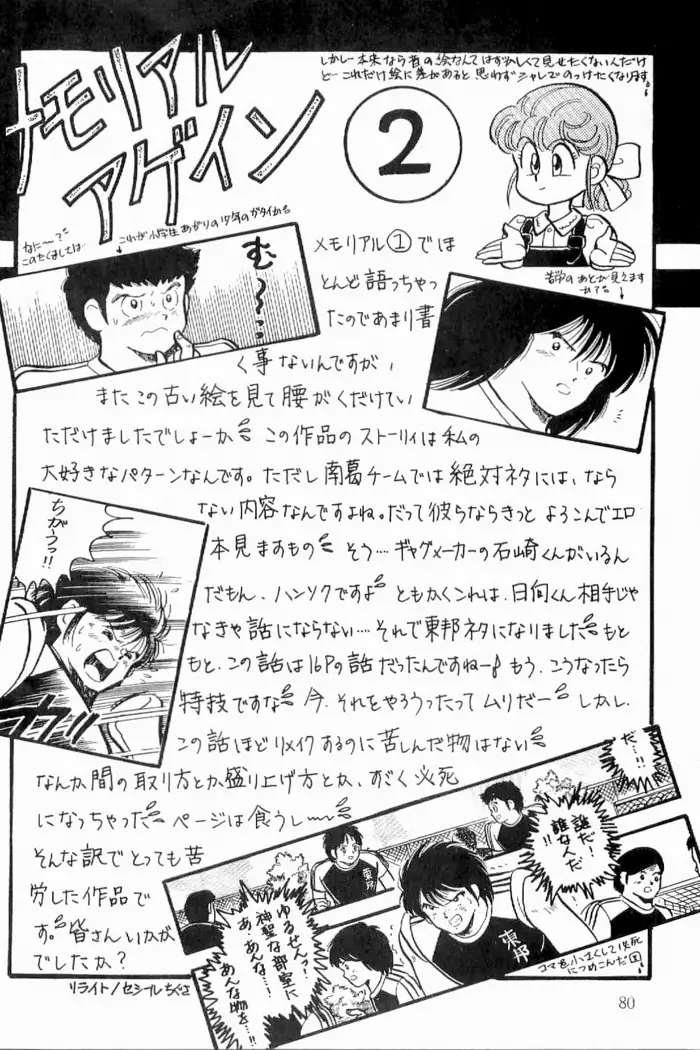 メモリアル
アゲイン
②
しかし…本来なら昔の絵なんてはずかしくて見せたくないんだけ
ど…これだけ絵に差があると思わずシャレでのっけたくなります
なに〜?
このたくましては…
これが小学生あがりの少年のガタイかる
む〜…
若島のあとが見えます
メモリアル①でほ
とんど語っちゃっ
たのであまり書
く事ないんですが、
またこの古い絵を見て腰がくだけてい
ただけましたでしょーか
この作品のストーリィは私の
大好きなパターンなんです。ただし南葛チームでは絶対ネタには、なら
ない内容なんですよね。だって彼らならきっとよろこんでエロ
本見ますもの
そう…ギャグメーカーの石崎くんがいるん
だもん、ハンソクですよ
ともかくこれは、日向くん相手じゃ
なきゃ話にならない…それで東邦ネタになりました
もと
もと、この話は16Pの話だったんですねー
もう、こうなったら
特技ですな
今、それをやろうったってムリだー
しかし、
この話ほどリメイクするのに苦しんだ物はない
なんか間の取り方とか盛り上げ方とか、すごく必死
になっちゃった
ページは食うし〜
そんな訳でとっても苦
労した作品で
す。皆さんいかが
でしたか?
リライト/セシールちぐさ
ちがうっ!!
だ…!!
誰だ!
誰なんだ
!!
ゆるせんっ?
神聖な部室に
あ、あんな…!
あんな物を…!!
東邦
東邦
コマを小さくして必死
につめこんだ図
80